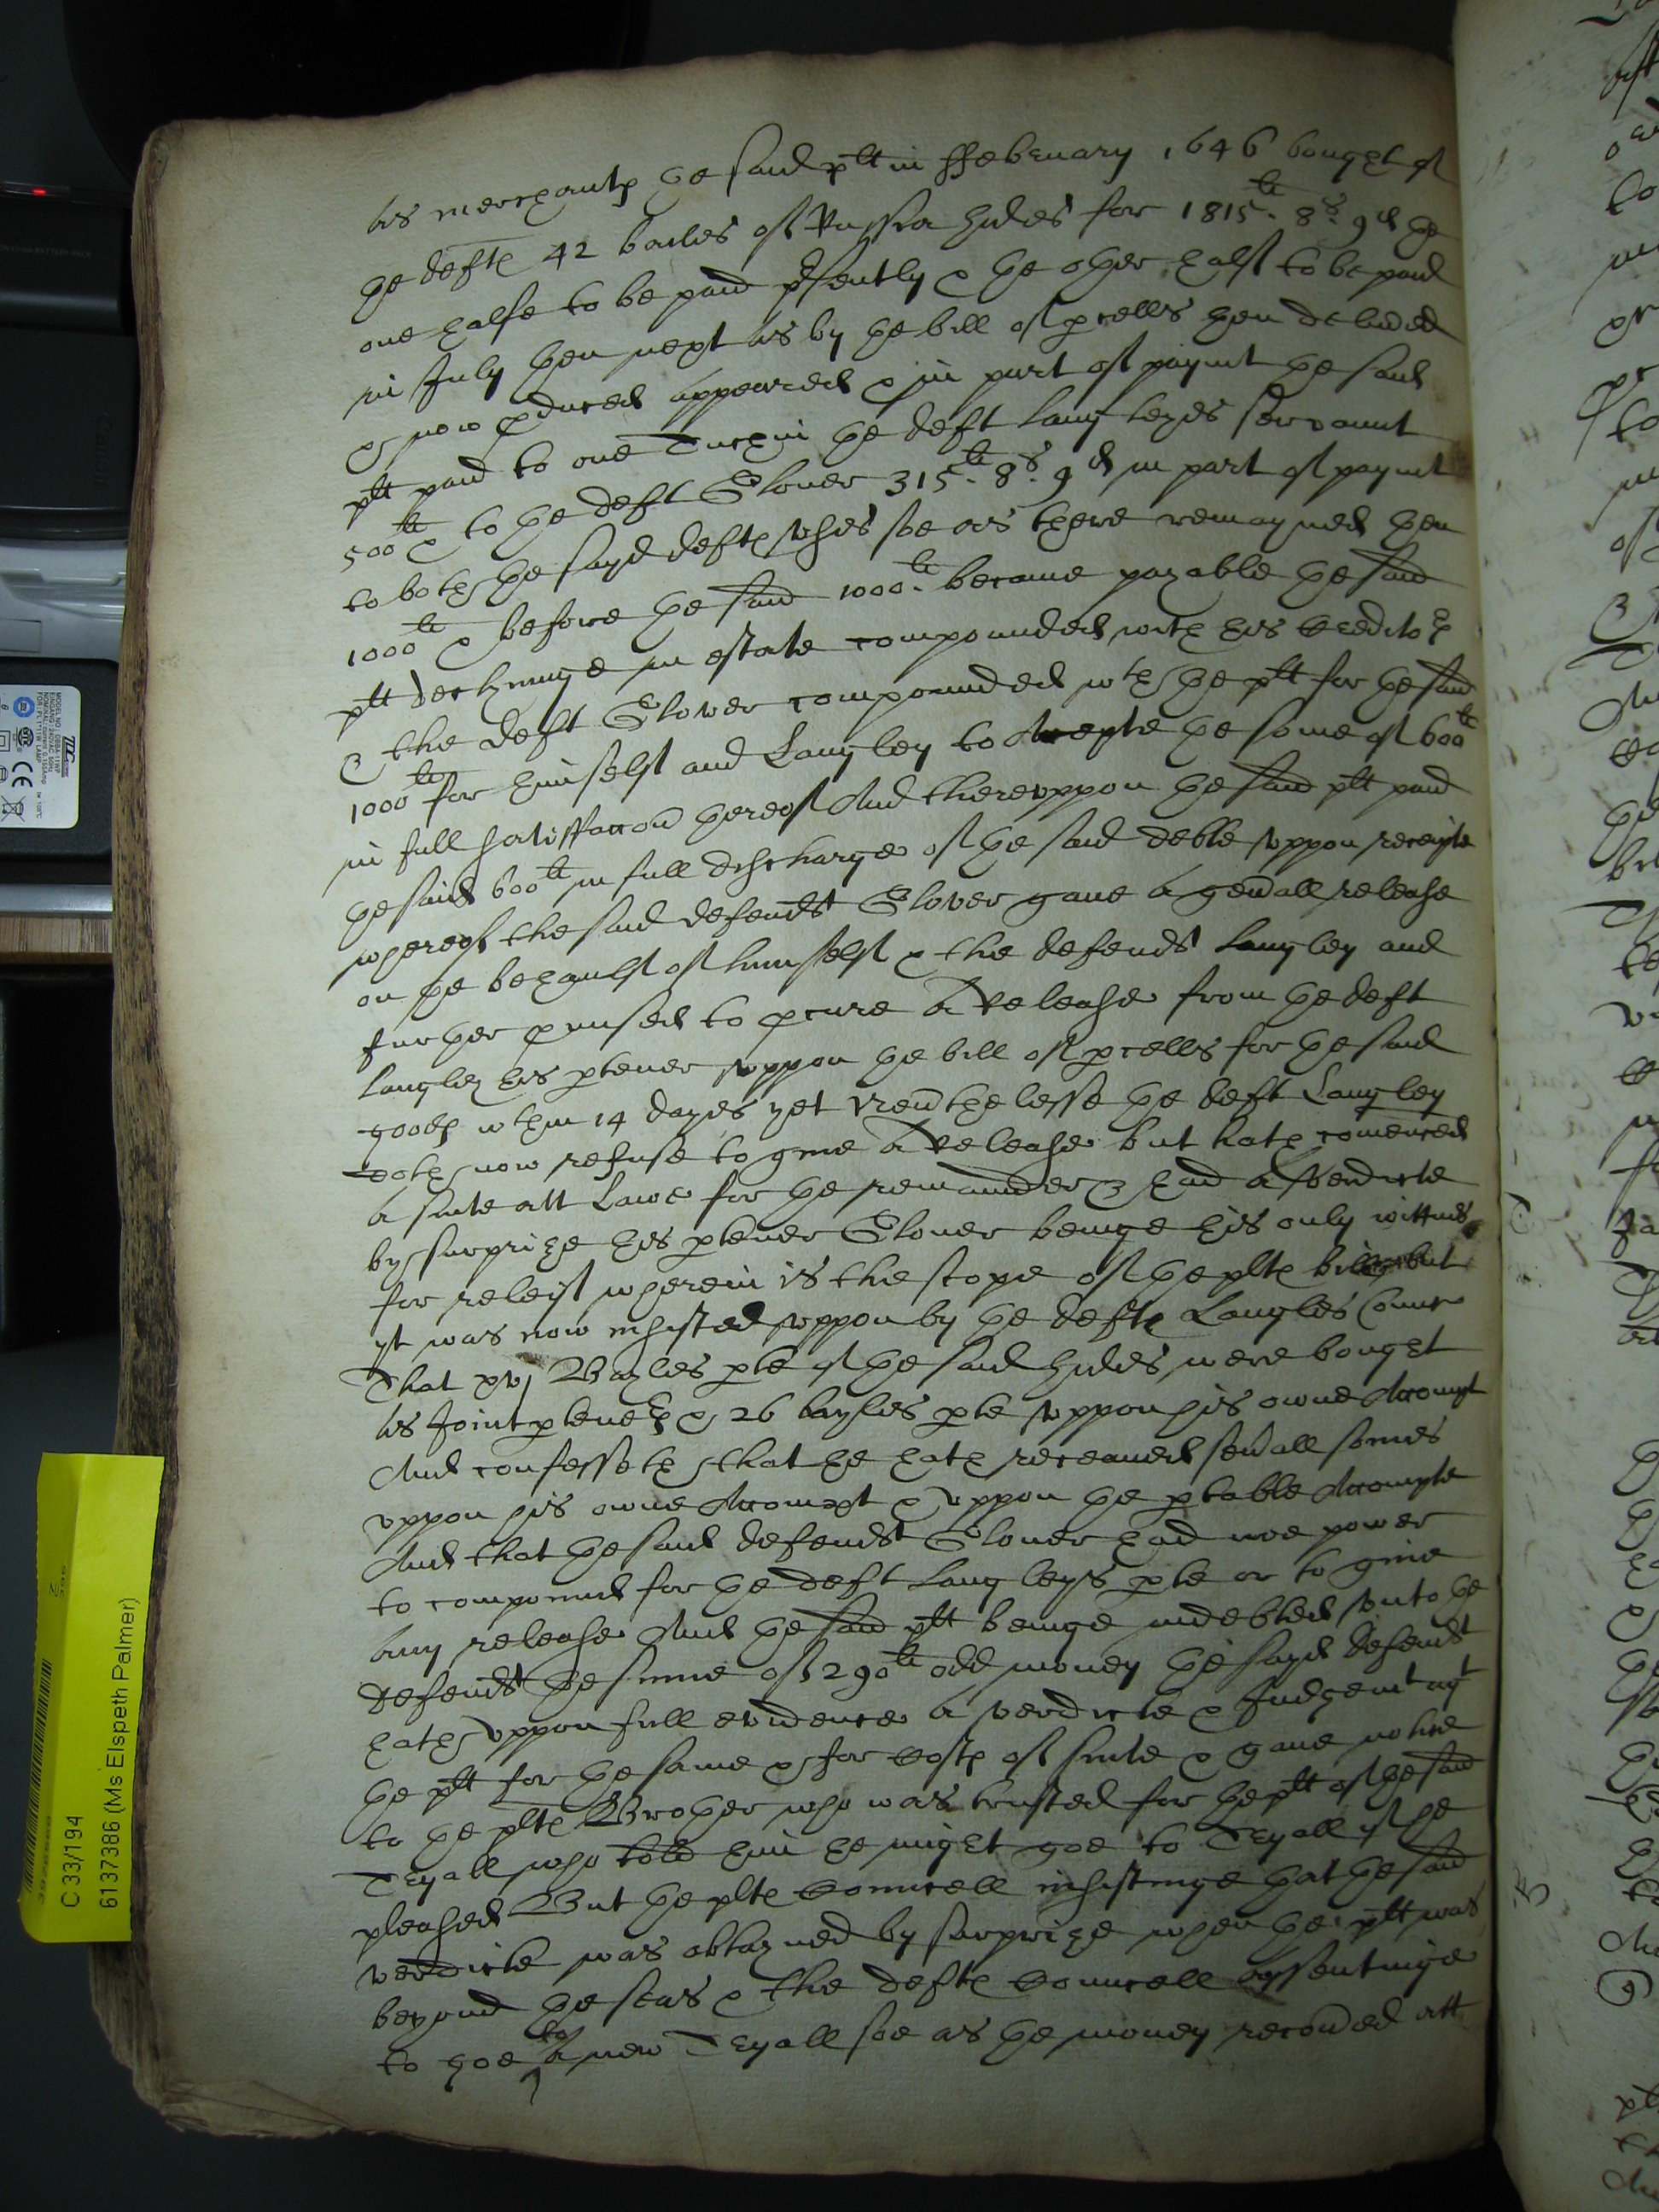 as merchants ye said plt in ffebruary 1646 bought of
ye defts 42 bailes of Russia hides for 1815li. 8s. 9d ye
one halfe to be paid psently & ye other halfe to be paid
in July then next as by ye bill of pcells then deliu'ed
& now pduced appeared & in part of paymt ye said
plt paid to one Tuchin ye deft Langleyes servaunt
500li & to ye deft Glover 315li. 8s. 9d in part of paymt
to both ye sayd defts vses soe as there remayned then
1000li & before ye said 1000li. became payable ye said
plt declyninge in estate compounded with his Creditors
& the deft Glover compounded wth ye plt for ye said
1000li for himself and Langley to Accepte ye some of 600li
in full satisfaccon thereof And thereuppon ye said plt paid
ye said 600li in full discharge of ye said debte vppon receipte
whereof the said defendt Glover gaue a gen'all release
on ye behaulf of himself & the defendt Langley and
further pmised to pcure a Release from ye deft
Langley his ptener vppon ye bill of pcells for ye said
goods wthin 14 dayes yet neu'thelesse ye deft Langley
doth now refuse to giue a Release but hath comenced
a suite att Lawe for ye remainder & had a Verdicte
by surprize his ptener Glouer beinge his only wittnes
for releif wherein is the scope of ye plts bill but
yt was now insisted vppon by ye defts Langles Councell
That xvj Bayles pte of ye said hides were bought
as Joint pteners & 26 bayles pte vppon his owne Accompt
And confesseth that he hath receaued seu'all somes
vppon his owne Accompt & vppon ye ptable Accompte
And that ye said defendt Glouer had noe power
to compound for ye deft Langleys pte or to giue
any release And ye said plt beinge indebted vnto ye
defendt ye summe of 290li odd money ye sayd defendt
hath vppon full evidence a verdicte & Judgemt agt
ye plt for ye same & for Costs of suite & gaue notice
to ye plts Brother who was trusted for ye plt of ye said
Tryall who told him he might goe to Tryall if he
pleased But ye plts Councell insistinge that ye said
verdicte was obtayned by surprize when ye plt was
beyond ye seas & the defts Councell
to goe to a new Tryall soe as ye money recou'ed att
C 33/194
6137386 (Ms Elspeth Palmer)